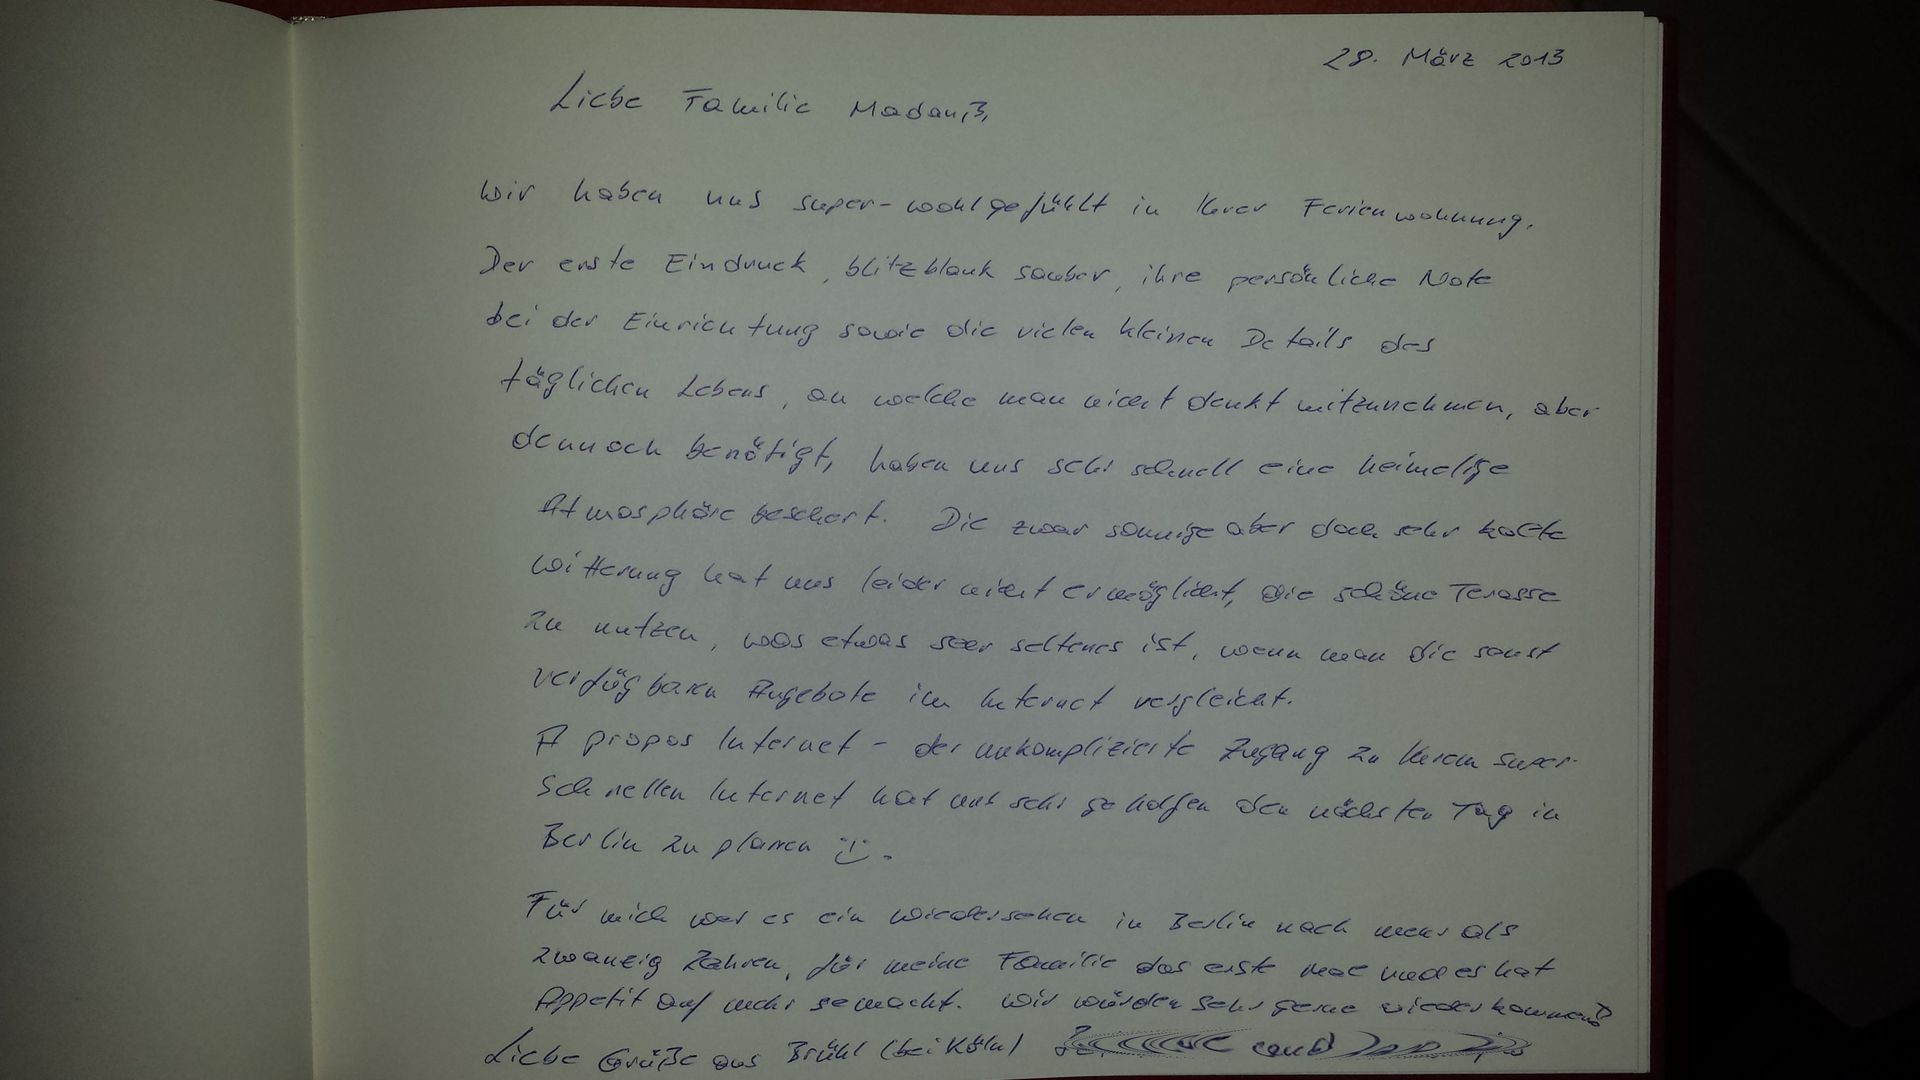 28. März 2013
Liebe Familie
Wir haben uns super-wohlgefühlt in Ihrer Ferienwohnung.
Der erste Eindruck, blitzblank sauber, ihre persönliche Note
bei der Einrichtung sowie die vielen kleinen Details des
täglichen Lebens, an welche man nicht denkt mitzunehmen, aber
dennoch benötigt, haben uns sehr schnell eine heimelige
Atmosphäre beschert. Die zwar sonnige aber doch sehr kalte
Witterung hat uns leider nicht ermöglicht, die schöne Terasse
zu nutzen, was etwas seltenes ist, wenn man die sonst
verfügbaren Angebote im Internet vergleicht.
A propos Internet - der unkomplizierte Zugang zu Ihrem super-
schnellen Internet hat uns sehr geholfen den nächsten Tag in
Berlin zu planen :).
Für mich war es ein wiedersehen in Berlin nach mehr als
zwanzig Jahren, für meine Familie das erste mal und es hat
Appetit auf mehr gemacht. Wir würden sehr gerne wiederkommen!
Liebe Grüße aus Brühl (bei Köln)